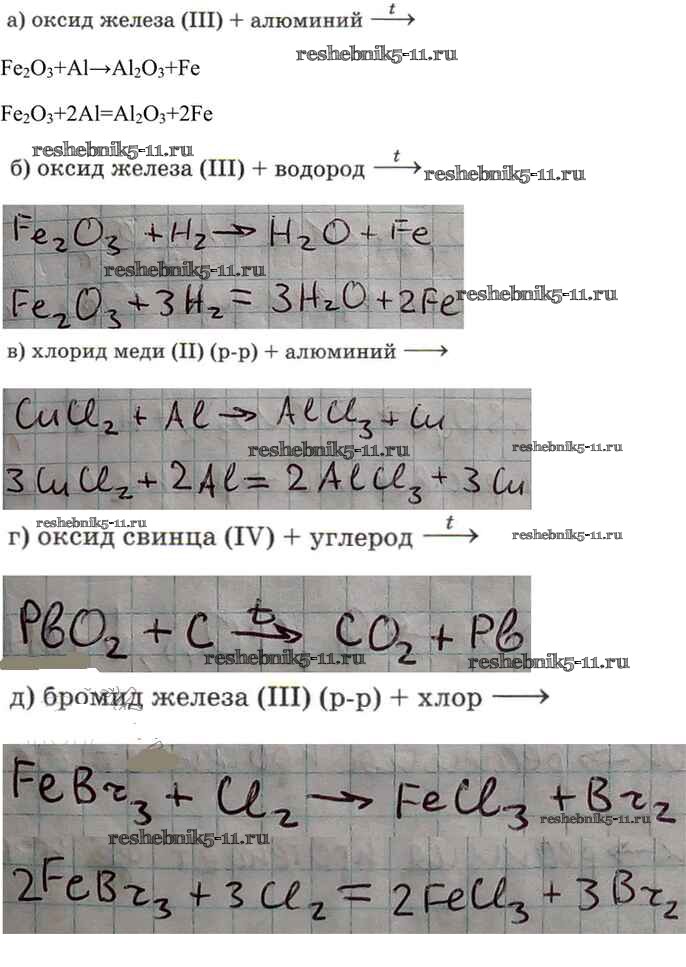 а) оксид железа (III) + алюминий —t→
reshebnik5-11.ru
Fe₂O₃+Al→Al₂O₃+Fe
Fe₂O₃+2Al=Al₂O₃+2Fe
reshebnik5-11.ru
б) оксид железа (III) + водород —t→
reshebnik5-11.ru
Fe₂O₃ + H₂ → H₂O + Fe
reshebnik5-11.ru
Fe₂O₃ + 3H₂ = 3H₂O + 2Fe
reshebnik5-11.ru
в) хлорид меди (II) (р-р) + алюминий ⟶
CuCl₂ + Al → AlCl₃ + Cu
reshebnik5-11.ru
reshebnik5-11.ru
3CuCl₂ + 2Al = 2AlCl₃ + 3Cu
reshebnik5-11.ru
г) оксид свинца (IV) + углерод —t→
reshebnik5-11.ru
PbO₂ + C —t→ CO₂ + Pb
reshebnik5-11.ru
reshebnik5-11.ru
д) бромид железа (III) (р-р) + хлор ⟶
FeBr₃ + Cl₂ → FeCl₃ + Br₂
reshebnik5-11.ru
reshebnik5-11.ru
2FeBr₃ + 3Cl₂ = 2FeCl₃ + 3Br₂